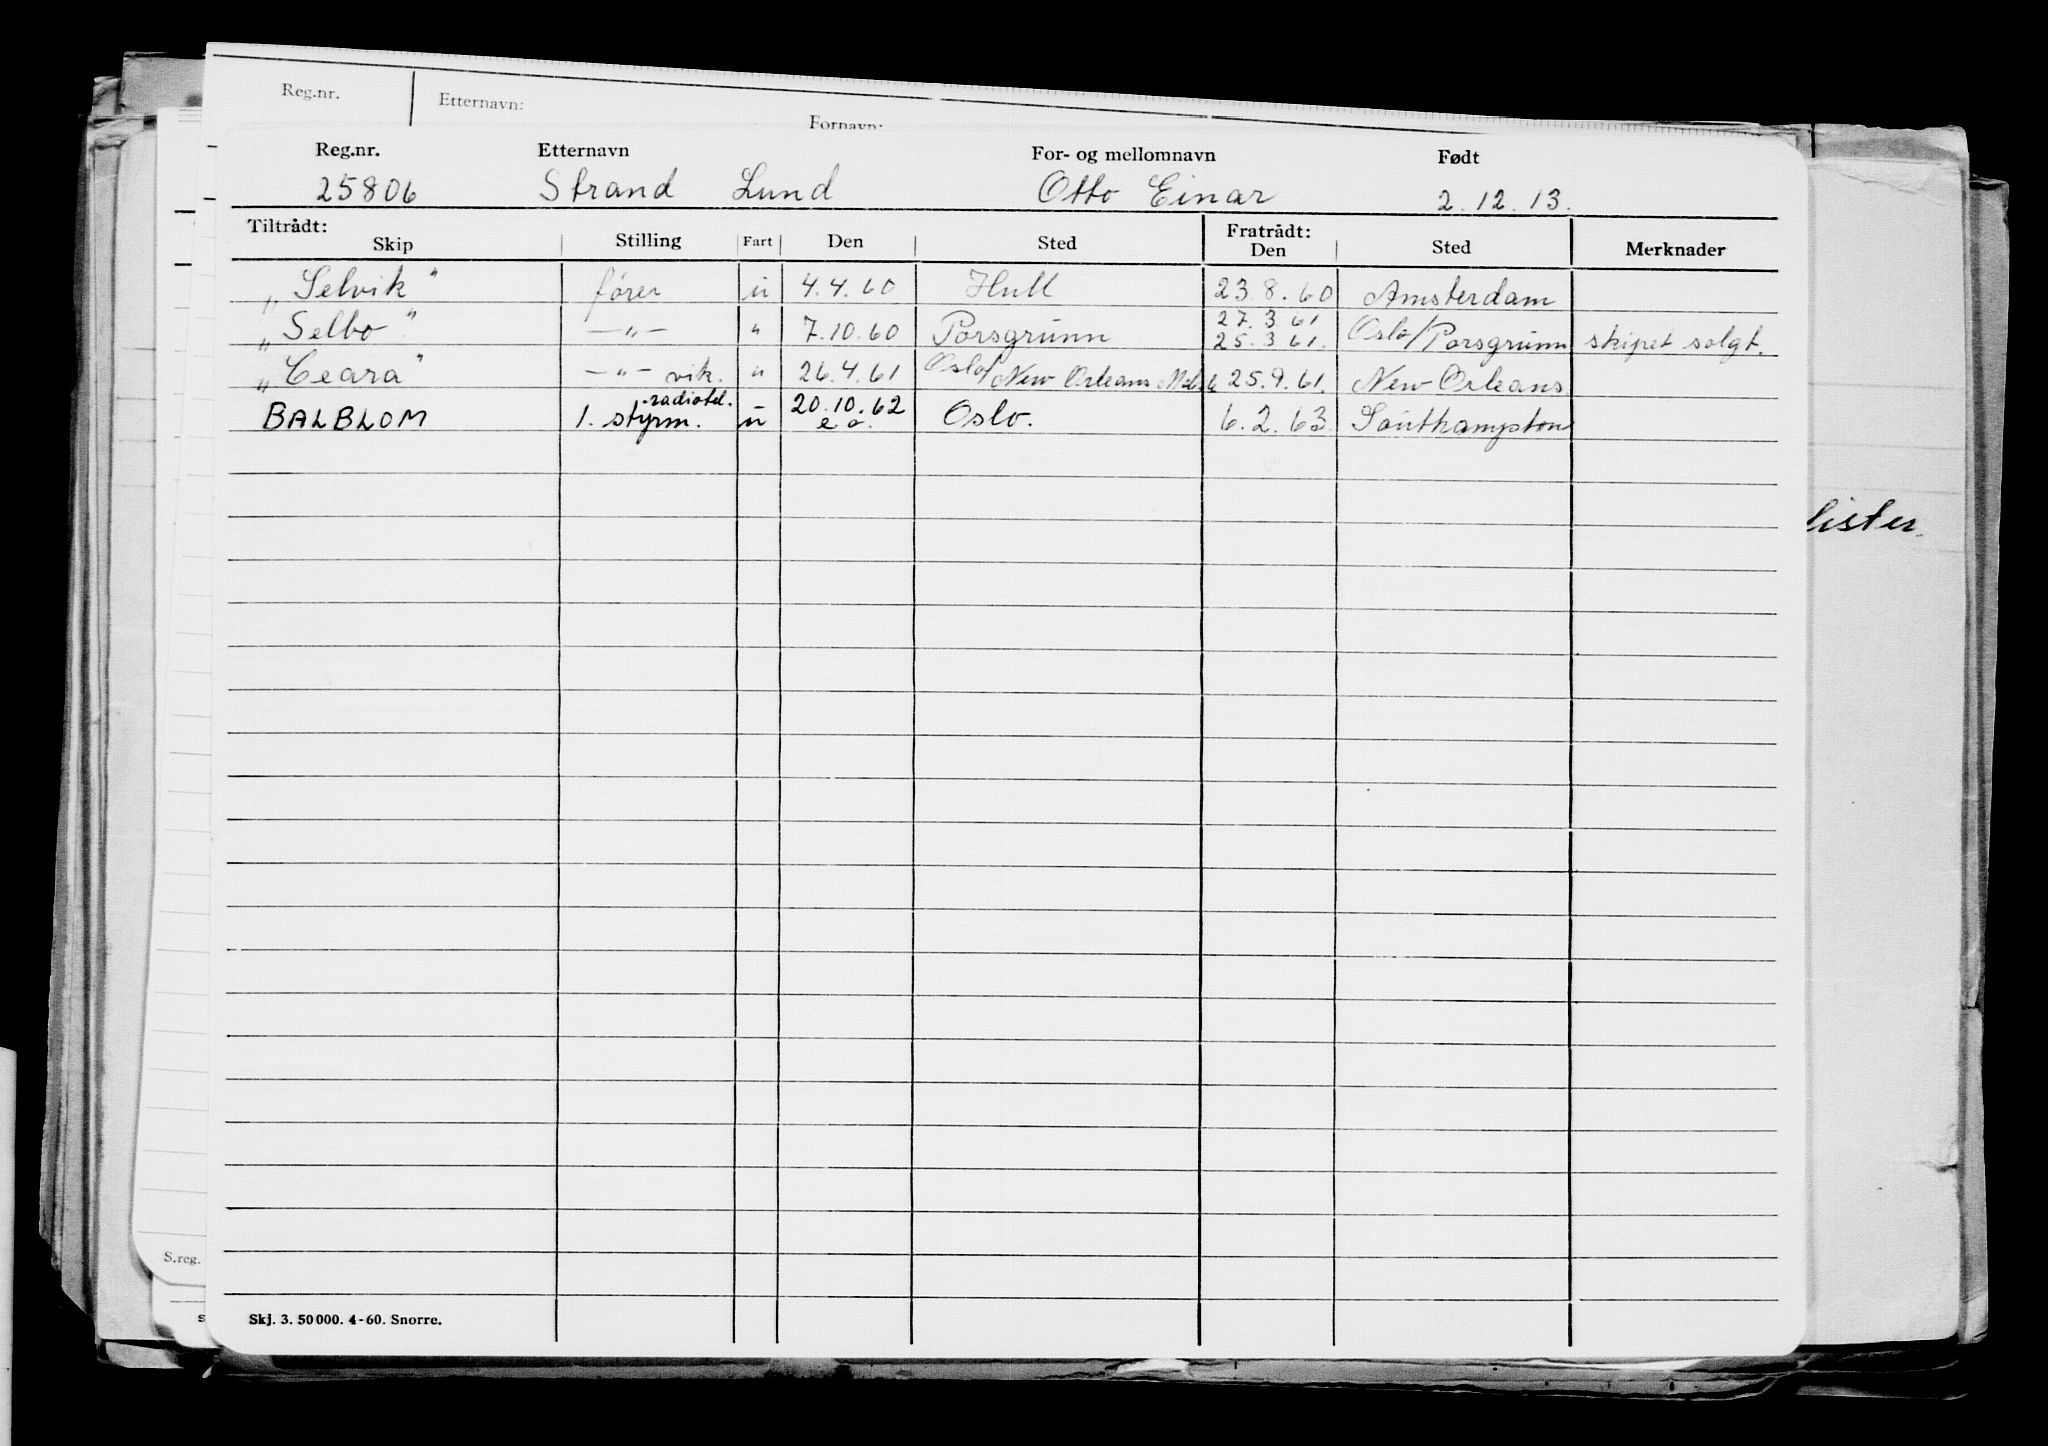 Reg.nr. Etternavn: Fornavn:
Reg.nr. Etternavn For- og mellomnavn Født
25806 Strand Lund Otto Einar 2.12.13.
Tiltrådt: Fratrådt:
Skip Stilling Fart Den Sted Den Sted Merknader
„Selvik" fører ü 4.4.60 Hull 23.8.60 Amsterdam
27.3.61
„Selbo" —"— " 7.10.60 Porsgrunn 25.3.61. Oslo/Porsgrunn skipet solgt.
„Ceara" —"— vik. " 26.4.61 Oslo/New Orleans 25.9.61. New Orleans
radiotel.
BALBLOM 1. styrm. ü 20.10.62 Oslo. 6.2.63 Southampton
e o.
lister.
S.reg.
Skj. 3. 50 000. 4-60. Snorre.